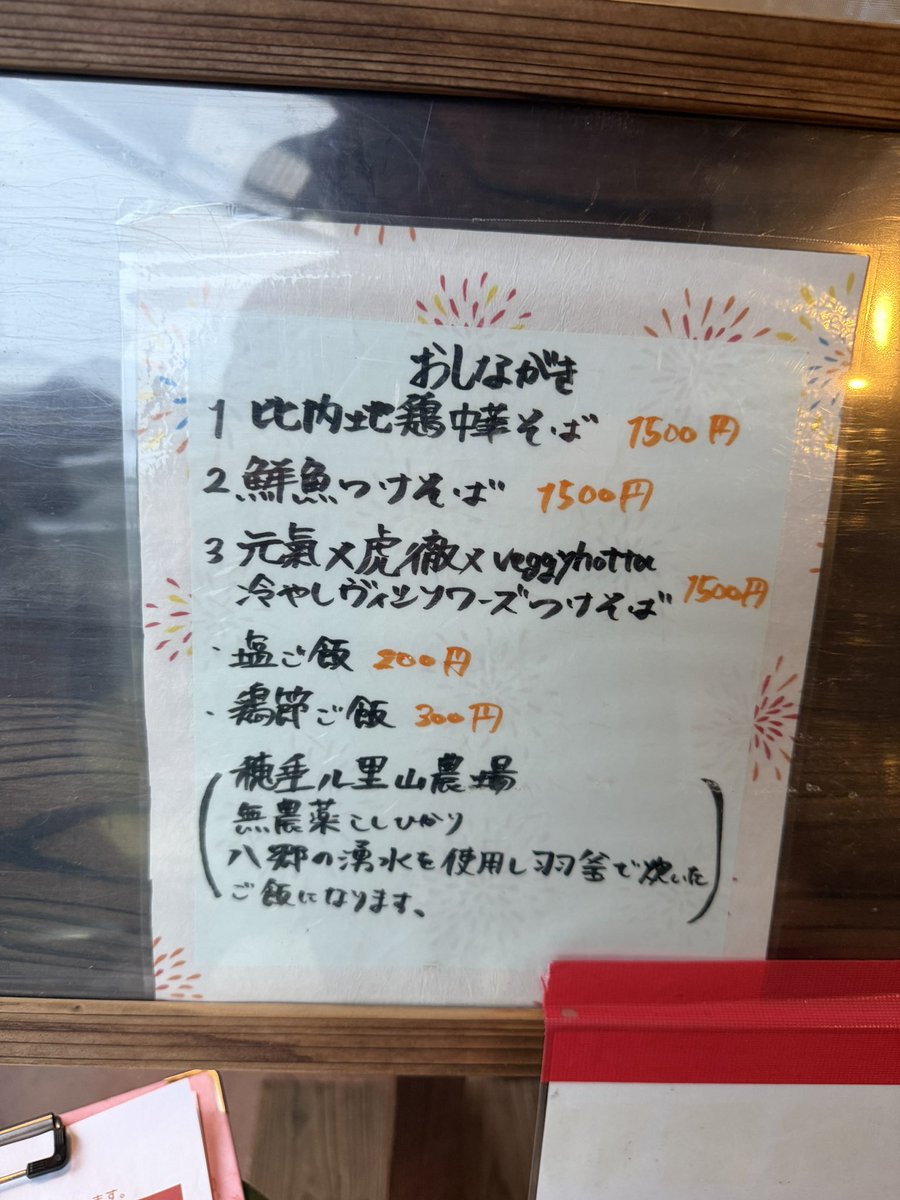 おしながき
1 比内地鶏中華そば 1500円
2 鮮魚つけそば 1500円
3 元氣×虎徹×veggyhotta
冷やしヴィシソワーズつけそば 1500円
・塩ご飯 200円
・鶏節ご飯 300円
穂垂ル里山農場
無農薬こしひかり
八郷の湧水を使用し羽釜で炊いた
ご飯になります。
ます。